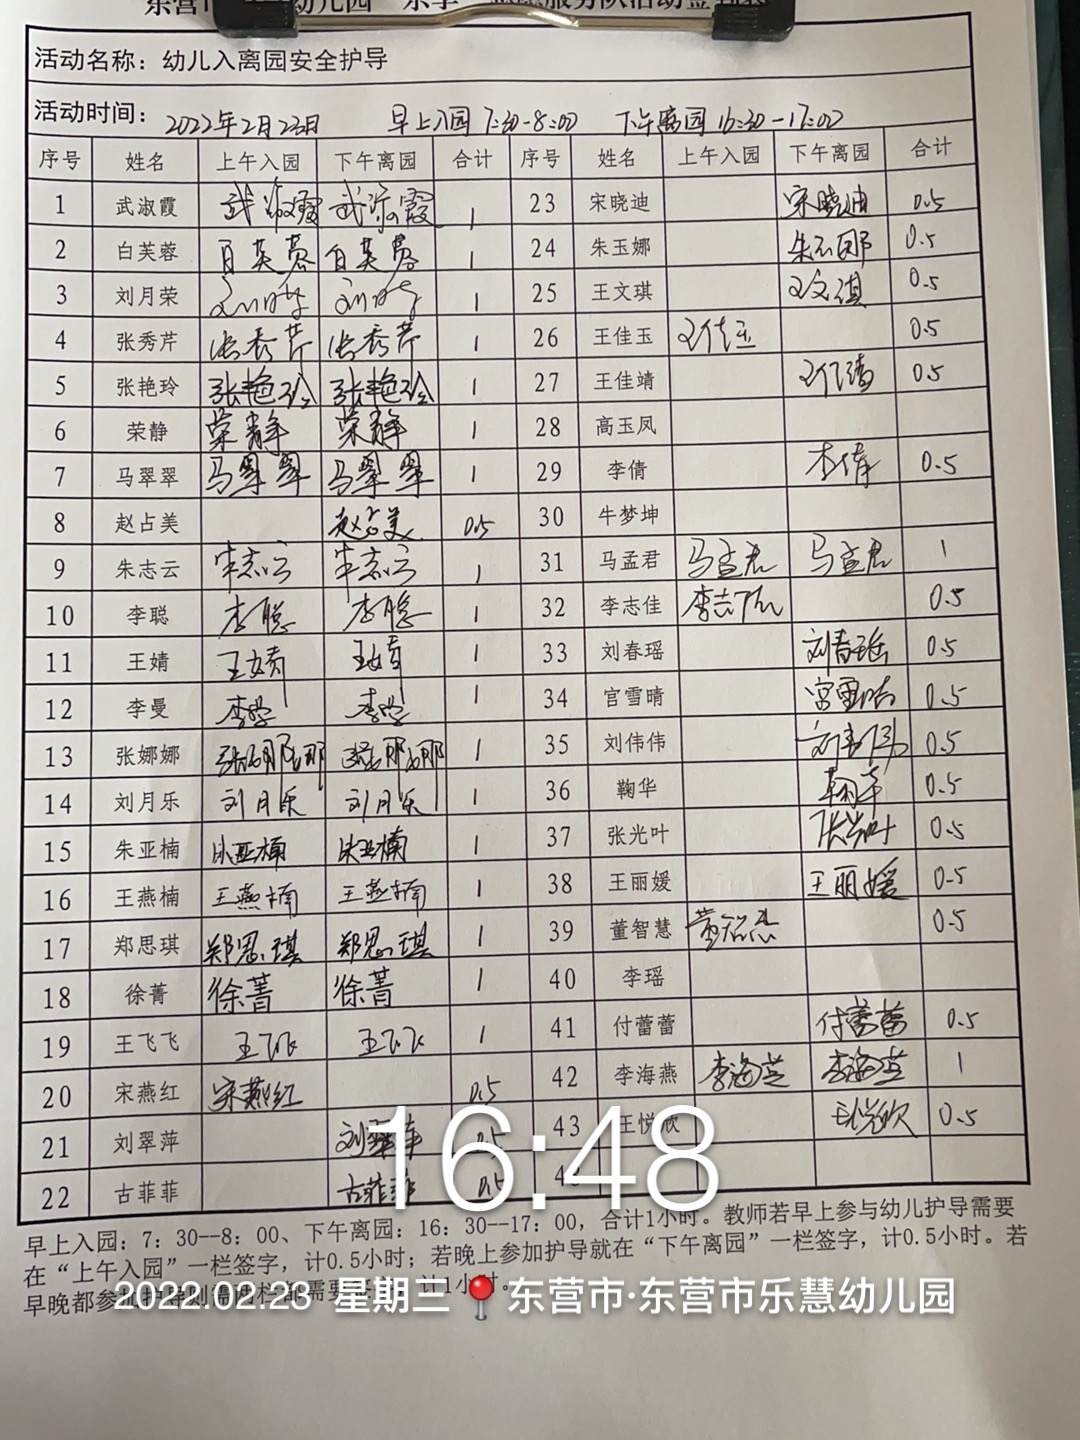 活动名称：幼儿入离园安全护导
活动时间：2022年2月23日 早上入园 7:30-8:00 下午离园 16:30-17:00
序号 姓名 上午入园 下午离园 合计 序号 姓名 上午入园 下午离园 合计
1 武淑霞 武淑霞 武淑霞 1 23 宋晓迪 宋晓迪 0.5
2 白芙蓉 白芙蓉 白芙蓉 1 24 朱玉娜 朱玉娜 0.5
3 刘月荣 1 25 王文琪 王文琪 0.5
4 张秀芹 张秀芹 张秀芹 1 26 王佳玉 王佳玉 0.5
5 张艳玲 张艳玲 张艳玲 1 27 王佳靖 王佳靖 0.5
6 荣静 荣静 荣静 1 28 高玉凤
7 马翠翠 马翠翠 马翠翠 1 29 李倩 李倩 0.5
8 赵占美 赵占美 0.5 30 牛梦坤
9 朱志云 朱志云 朱志云 1 31 马孟君 马孟君 马孟君 1
10 李聪 李聪 李聪 1 32 李志佳 李志佳 0.5
11 王婧 王婧 王婧 1 33 刘春瑶 刘春瑶 0.5
12 李曼 李曼 李曼 1 34 官雪晴 官雪晴 0.5
13 张娜娜 张娜娜 张娜娜 1 35 刘伟伟 刘伟伟 0.5
14 刘月乐 刘月乐 刘月乐 1 36 鞠华 鞠华 0.5
15 朱亚楠 朱亚楠 朱亚楠 1 37 张光叶 张光叶 0.5
16 王燕楠 王燕楠 王燕楠 1 38 王丽媛 王丽媛 0.5
17 郑思琪 郑思琪 郑思琪 1 39 董智慧 董智慧 0.5
18 徐菁 徐菁 徐菁 1 40 李瑶
19 王飞飞 王飞飞 王飞飞 1 41 付蕾蕾 付蕾蕾 0.5
20 宋燕红 宋燕红 0.5 42 李海燕 李海燕 李海燕 1
21 刘翠萍 刘翠萍 0.5 43 王悦欣 王悦欣 0.5
22 古菲菲 古菲菲 0.5
16:48
早上入园：7：30--8：00、下午离园：16：30--17：00，合计1小时。教师若早上参与幼儿护导需要
在“上午入园”一栏签字，计0.5小时；若晚上参加护导就在“下午离园”一栏签字，计0.5小时。若
早晚都参加护导则需两栏都需要签字，计1小时。
2022.02.23 星期三 东营市·东营市乐慧幼儿园